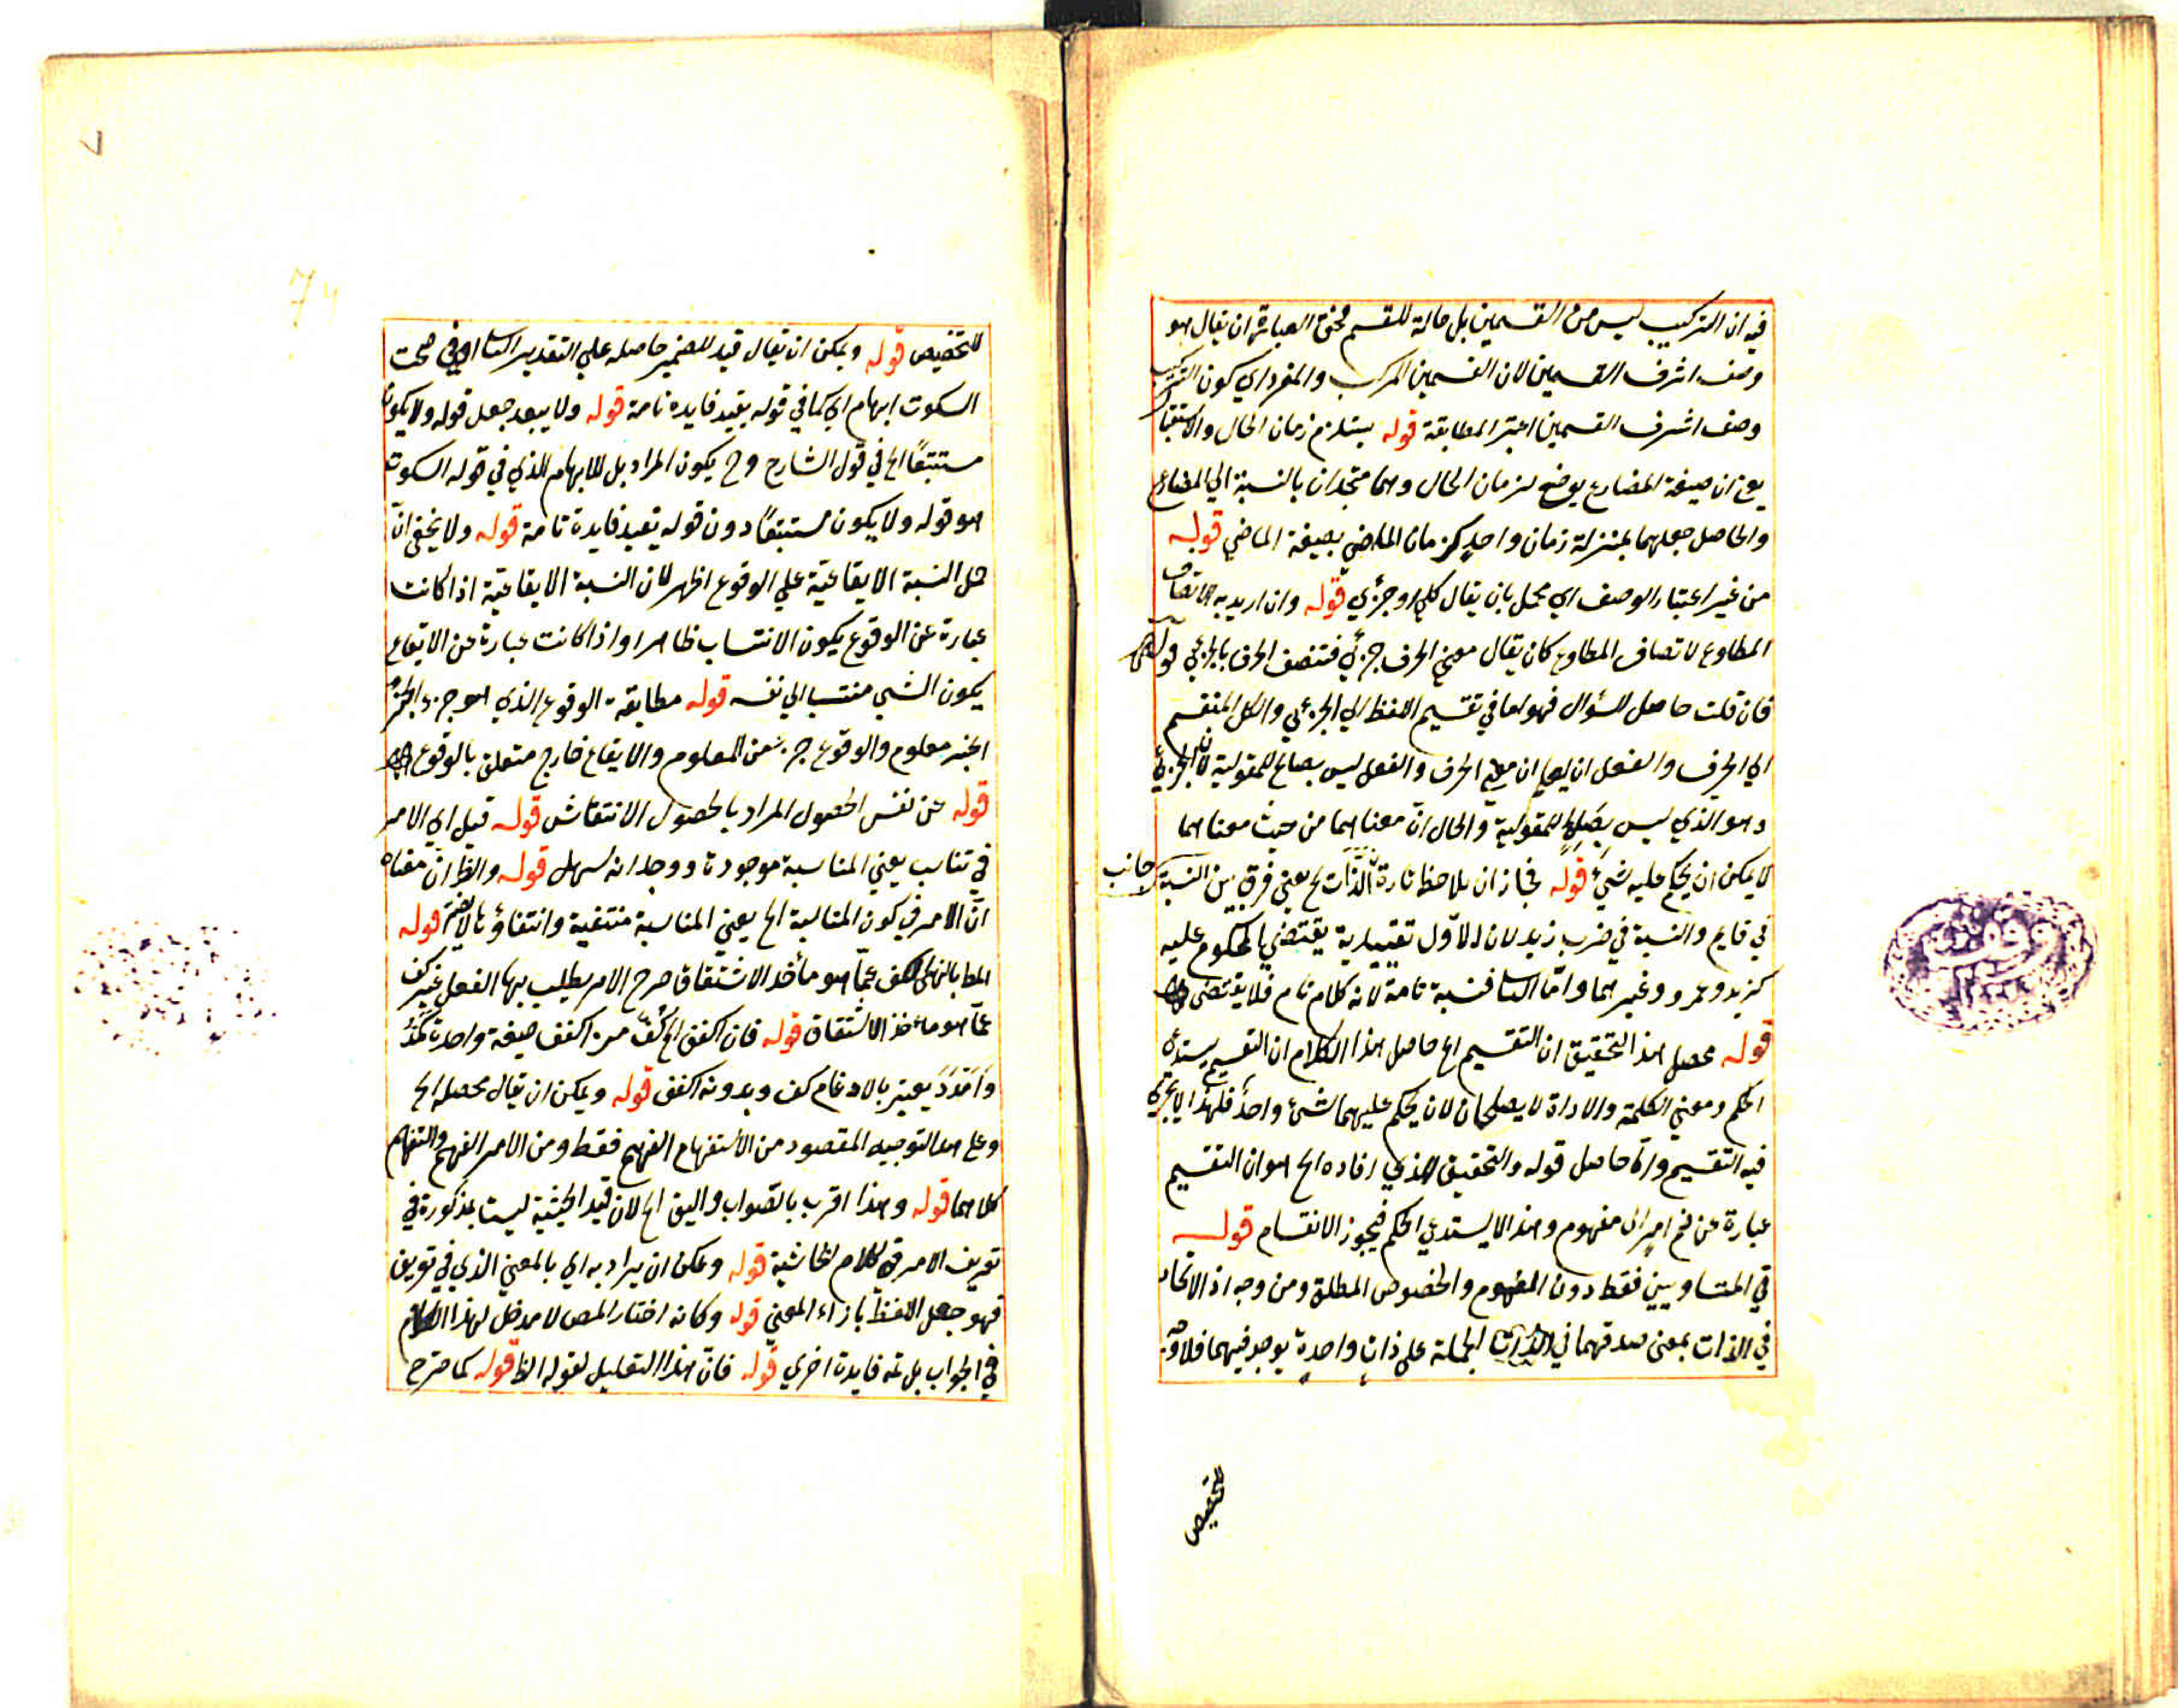 فيه ان التركيب ليس من القسمين بل حالة للقسم فحق العبارة ان يقال هو
وصف اشرف القسمين لان القسمين المركب والمفرد اي كون التركيب
وصف اشرف القسمين اعتبر المطابقة قوله يستلزم زمان الحال والاستقبا
يعني ان صيغة المضارع يوضع لزمان الحال وهما متحدان بالنسبة الي المضارع
والحاصل جعلهما بمنزلة زمان واحد كزمان الماضي بصيغة الماضي قوله
من غير اعتبار الوصف اي محمل بان يقال كلي او جزئي قوله وان اريد به الاتصاف
المطاوع لاتصاف المطاوع كان يقال معني الحرف جزئي فتتصف الحرف بالجزئي قوله
فان قلت حاصل السؤال فهو اما في تقسيم اللفظ الي الجزئي والكل المنقسم
الي الحرف والفعل ان معني الحرف والفعل ليس بصالح للمقولية لان الجزئي
وهو الذي ليس يصلح للمقولية والحال ان معناهما من حيث معناهما
لا يمكن ان يحكم عليه شئ قوله فجاز ان يلاحظ تارة الذات الخ يعني فرق بين النسبة
جانب
في قايم والنسبة في ضرب زيد لان الاول تقييدية يقتضي المحكوم عليه
كزيد وعمرو وغيرهما واما الثا فنسبة تامة لانه كلام تام فلا يقتضي
قوله محصل هذا التحقيق ان التقسيم الخ حاصل هذا الكلام ان التقسيم يستدعي
الحكم ومعني الكلمة والاداة لا يصلحان لان يحكم عليهما لشئ واحد فلهذا لا يجري
فيه التقسيم ورد حاصل قوله والتحقيق الذي افاده الخ هو ان التقسيم
عبارة عن ضم امر الي مفهوم وهذا لا يستدعي الحكم فيجوز الانقسام قوله
في المتساويين فقط دون المفهوم والخصوص المطلق ومن وجه اذ الاتحاد
في الذات بمعني صدقهما في الذرات الجملة علي ذات واحدة يوجد فيهما فلا وجه
للتخصيص
للتخصيص قوله ويمكن ان يقال قيد للضمير حاصله علي التقدير الثا وفي صحت
السكوت ابهام اي كما في قوله يفيد فايدة تامة قوله ولا يبعد جعل قوله ولا يكون
مستتبعًا الخ في قول الشارح وح يكون المراد بل للابهام الذي في قوله السكوت
هو قوله ولا يكون مستتبعًا دون قوله يفيد فايدة تامة قوله ولا يخفي ان
حمل النسبة الايقاعية علي الوقوع اظهر لان النسبة الايقاعية اذا كانت
عبارة عن الوقوع يكون الانتساب ظاهرا واذا كانت عبارة عن الايقاع
يكون الشئ منتسبا الي نفسه قوله مطابقة الوقوع الذي هو جزء الخبر
الخبر معلوم والوقوع جزء من المعلوم والايقاع خارج متعلق بالوقوع
قوله عن نفس الحصول المراد بالحصول الانتقاش قوله قيل اي الامر
في تناسب يعني المناسبة موجودة ووجدانه سهل قوله والظ ان معناه
ان الامر في كون المناسبة الخ يعني المناسبة منتفية وانتفاؤها لا يضر قوله
المطا بالنهي الكف عما هو مأخذ الاشتقاق صرح الامر يطلب بها الفعل غير كف
عما هو مأخذ الاشتقاق قوله فان اكفف الخ كف من اكفف صيغة واحدة كمد
وامدد يعتبر بالادغام كف وبدونه اكفف قوله ويمكن ان يقال محصله الخ
وعلي هذا التوجيه المقصود من الاستفهام الفهم فقط ومن الامر الفهم والتفهم
كلاهما قوله وهذا اقرب بالصواب واليق الخ لان قيد الحيثية ليست بمذكورة في
تعريف الامر في كلام الحاشية قوله ويمكن ان يراد به اي بالمعني الذي في تعريف
فهو جعل اللفظ بازاء المعني قوله وكانه اختار المص لا مدخل لهذا الكلام
في الجواب بل ثمة فايدة اخري قوله فان هذا التعليل لقوله الظ قوله كما صرح